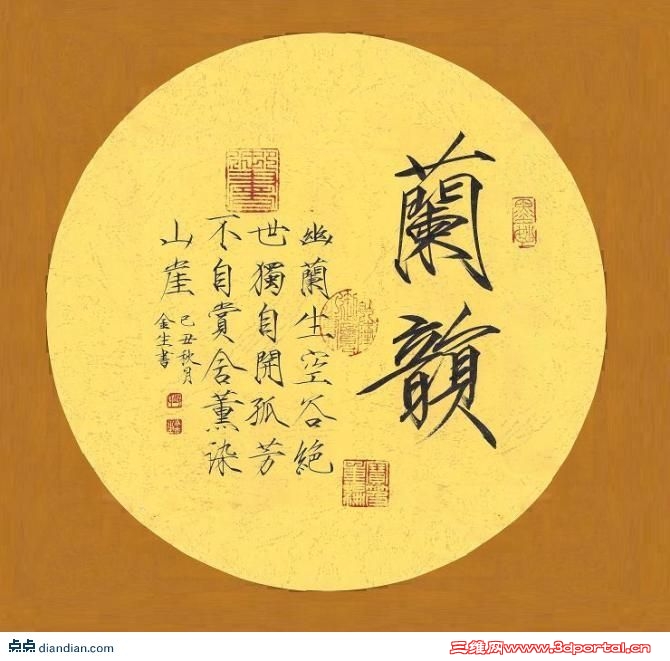 蘭韻
幽蘭生空谷絕
世獨自開孤芳
不自賞含薰染
山崖
己丑秋月
金生書
点点 diandian.com
三维网www.3dportal.cn